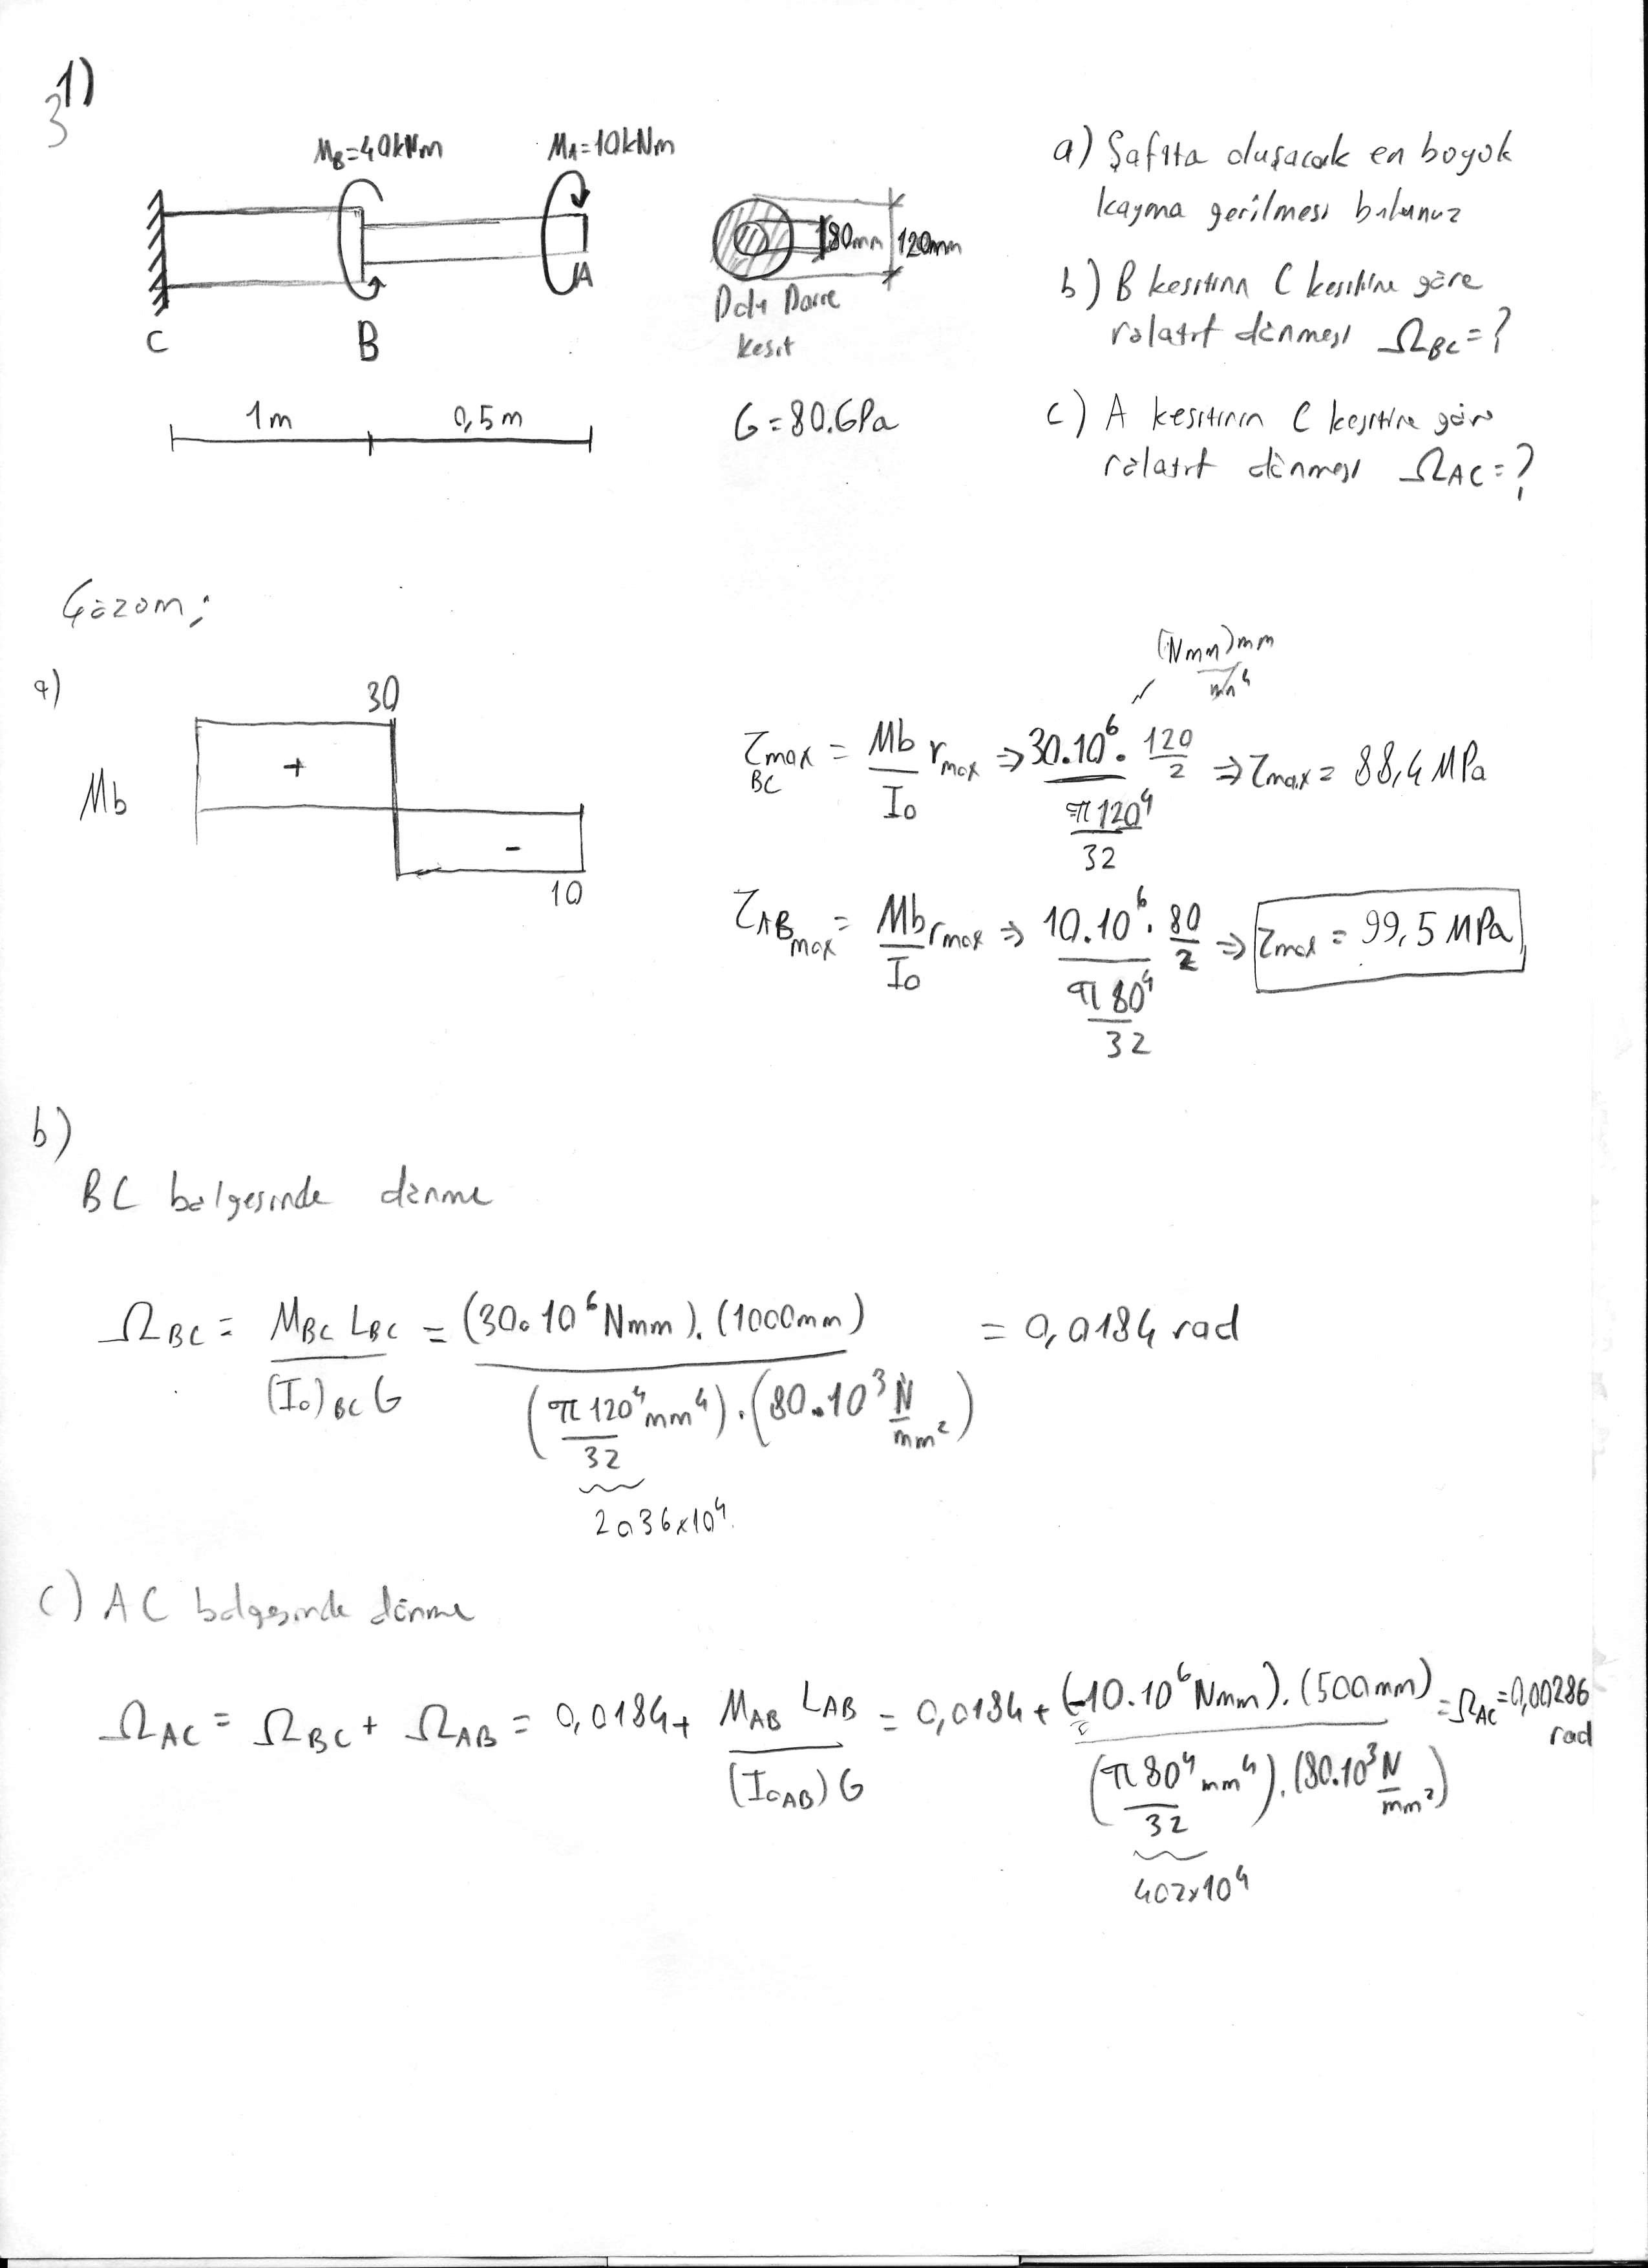 1)
3
M_B=40kNm
M_A=10kNm
C
B
A
1m
0,5m
80mm
120mm
Dolu Daire
kesit
G=80.GPa
a) Şaftta oluşacak en boyok
kayma gerilmesi bulunuz
b) B kesitinin C kesitine göre
rölatif dönmesi Ω_BC=?
c) A kesitinin C kesitine göre
rölatif dönmesi Ω_AC=?
Çözöm;
a)
30
+
Mb
-
10
(Nmm)mm / mm⁴
τ_max BC = Mb/I₀ r_max ⇒ 30.10⁶.120/2 / (π120⁴/32) ⇒ τ_max = 88,4 MPa
τ_AB max = Mb/I₀ r_max ⇒ 10.10⁶.80/2 / (π80⁴/32) ⇒ τ_max = 99,5 MPa
b)
BC bölgesinde dönme
Ω_BC = M_BC L_BC / (I₀)_BC G = (30.10⁶Nmm).(1000mm) / (π120⁴/32 mm⁴).(80.10³ N/mm²) = 0,0184 rad
2036x10⁴
c) AC bölgesinde dönme
Ω_AC = Ω_BC + Ω_AB = 0,0184 + M_AB L_AB / (I₀_AB) G = 0,0184 + (-10.10⁶Nmm).(500mm) / (π80⁴/32 mm⁴).(80.10³ N/mm²) = Ω_AC = 0,00286 rad
402x10⁴